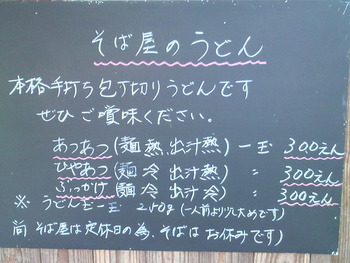 そば屋のうどん
本格手打ち包丁切りうどんです
ぜひご賞味ください。
あつあつ(麺 熱、出汁 熱) 一玉 300えん
ひやあつ(麺 冷 出汁 熱) 〃 300えん
ぶっかけ(麺 冷 出汁 冷) 〃 300えん
※ うどん玉一玉 250g(一人前より少し大めです)
尚 そば屋は定休日の為、そばはお休みです)